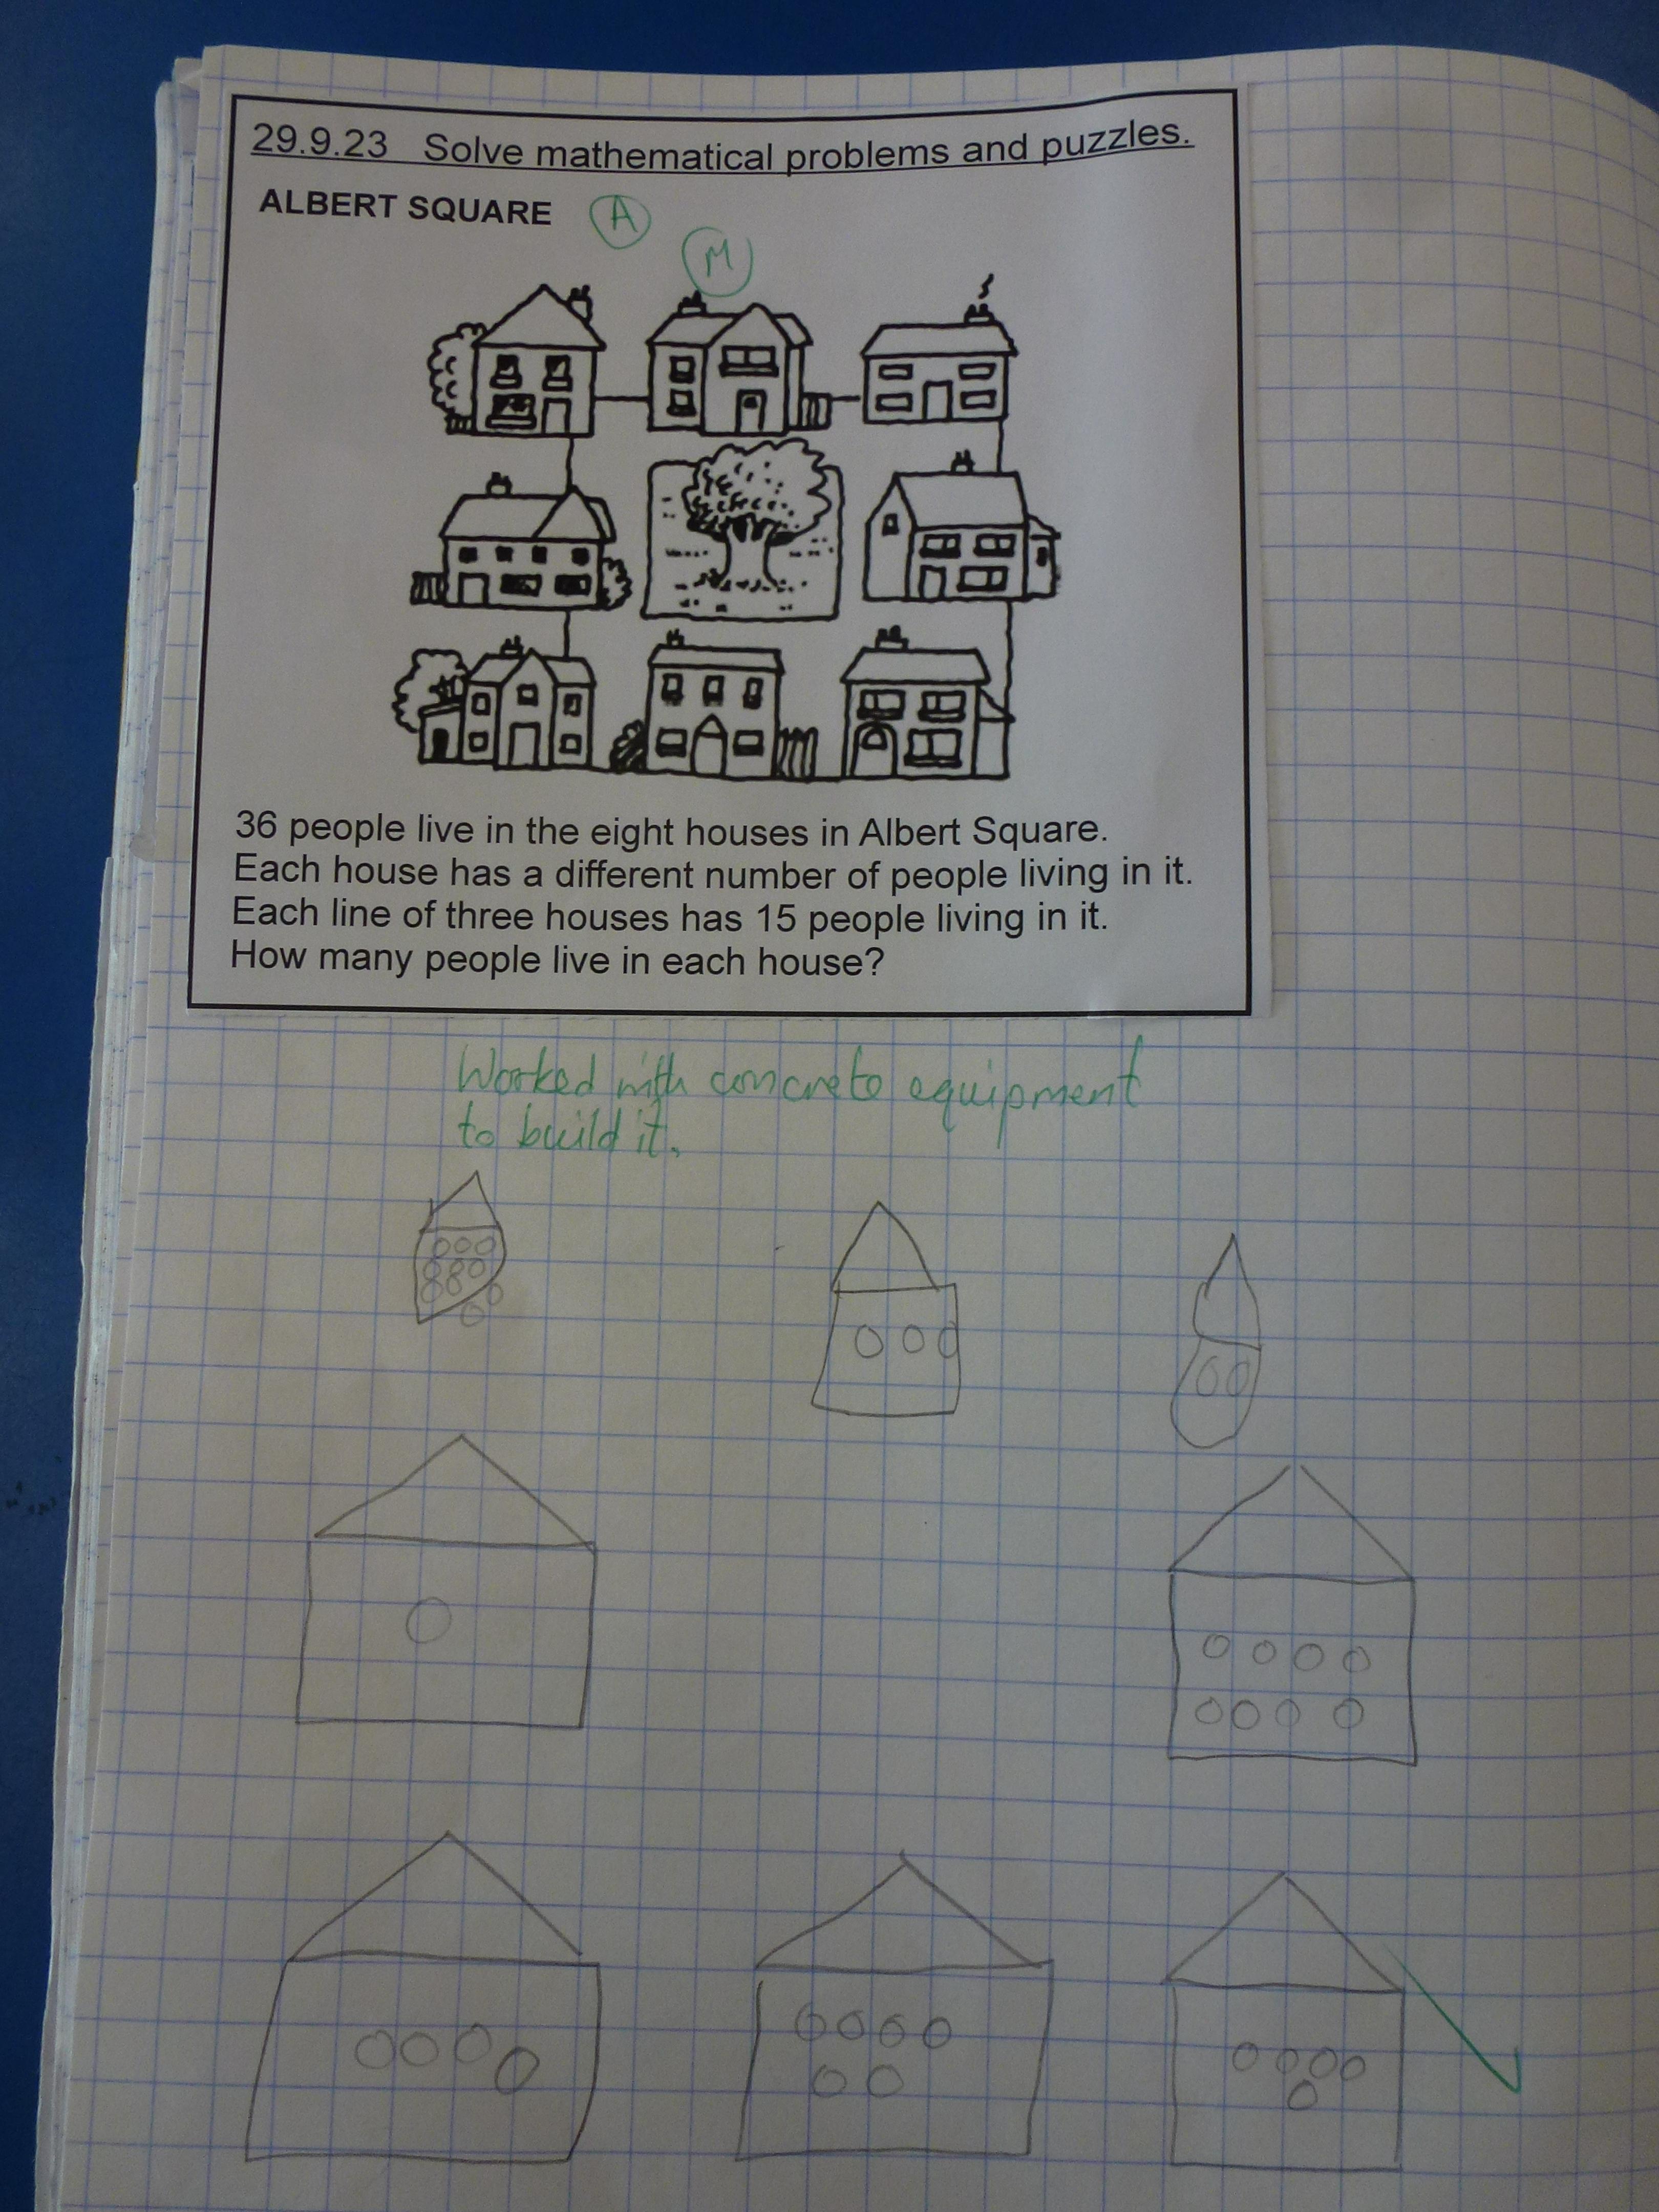 29.9.23 Solve mathematical problems and puzzles.
ALBERT SQUARE A
M
36 people live in the eight houses in Albert Square.
Each house has a different number of people living in it.
Each line of three houses has 15 people living in it.
How many people live in each house?
Worked with concrete equipment
to build it.